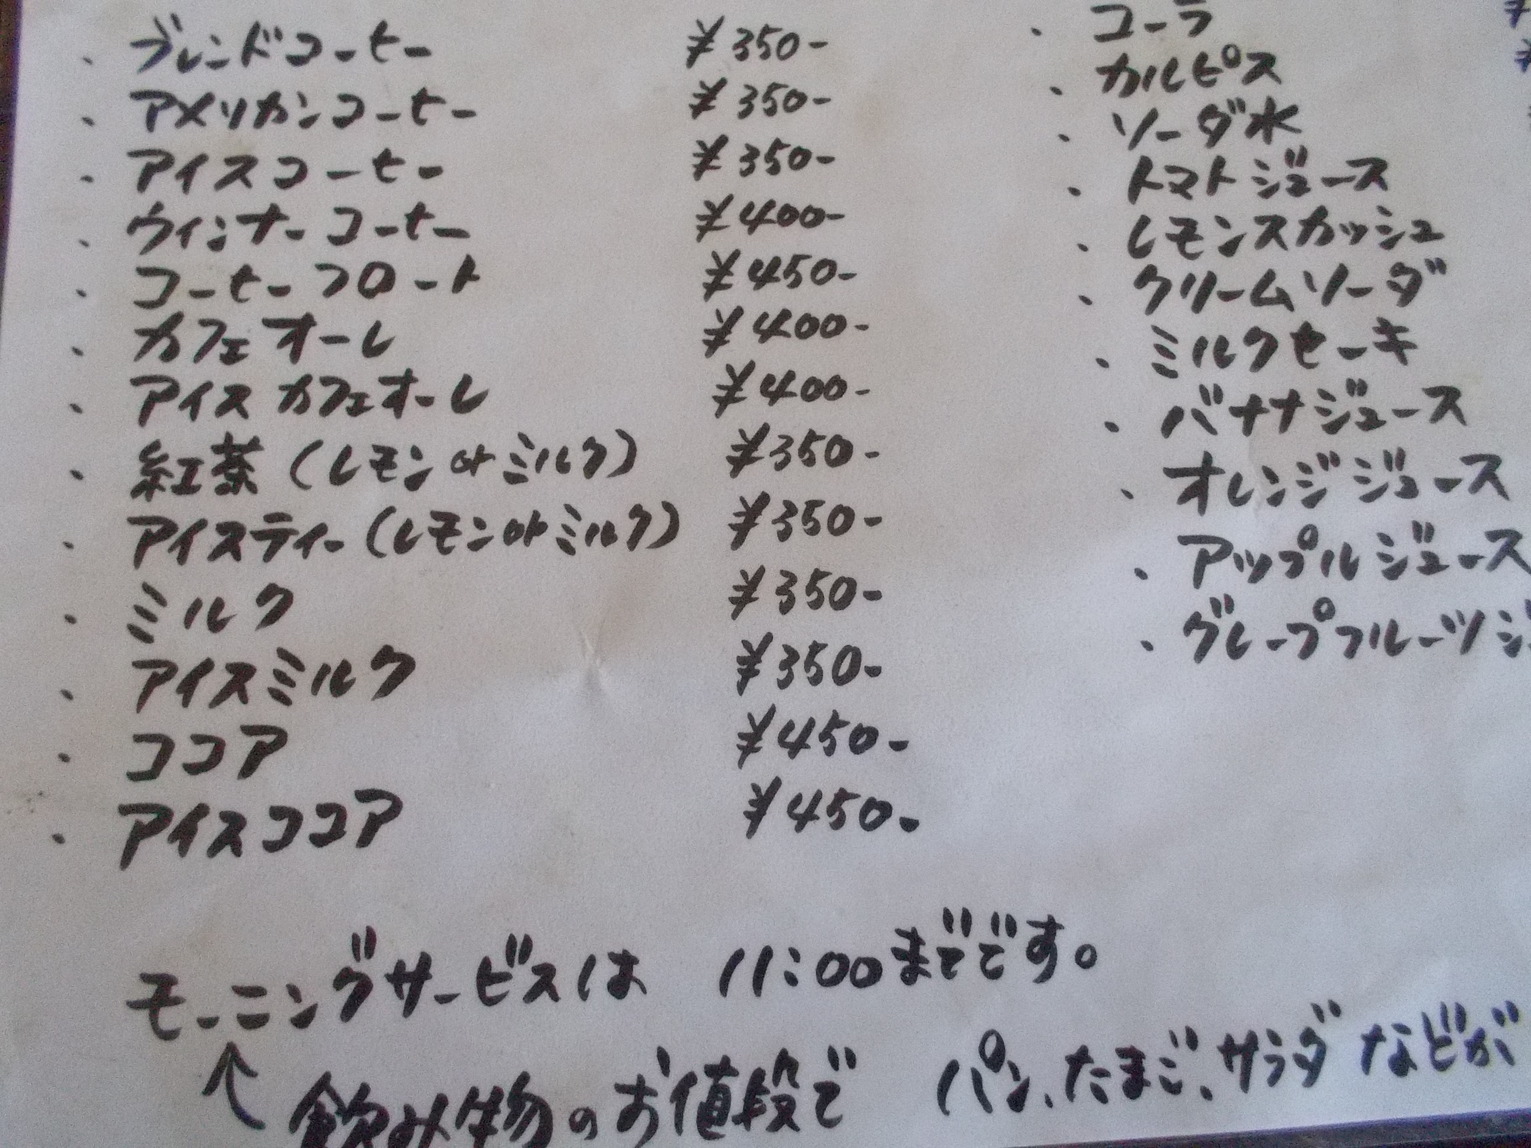 ・ブレンドコーヒー ¥350-
・アメリカンコーヒー ¥350-
・アイスコーヒー ¥350-
・ウィンナーコーヒー ¥400-
・コーヒーフロート ¥450-
・カフェオーレ ¥400-
・アイスカフェオーレ ¥400-
・紅茶(レモンorミルク) ¥350-
・アイスティー(レモンorミルク) ¥350-
・ミルク ¥350-
・アイスミルク ¥350-
・ココア ¥450-
・アイスココア ¥450-
・コーラ ¥
・カルピス ¥
・ソーダ水
・トマトジュース
・レモンスカッシュ
・クリームソーダ
・ミルクセーキ
・バナナジュース
・オレンジジュース
・アップルジュース
・グレープフルーツジ
モーニングサービスは 11:00までです。
↑飲み物のお値段で パン、たまご、サラダなどが